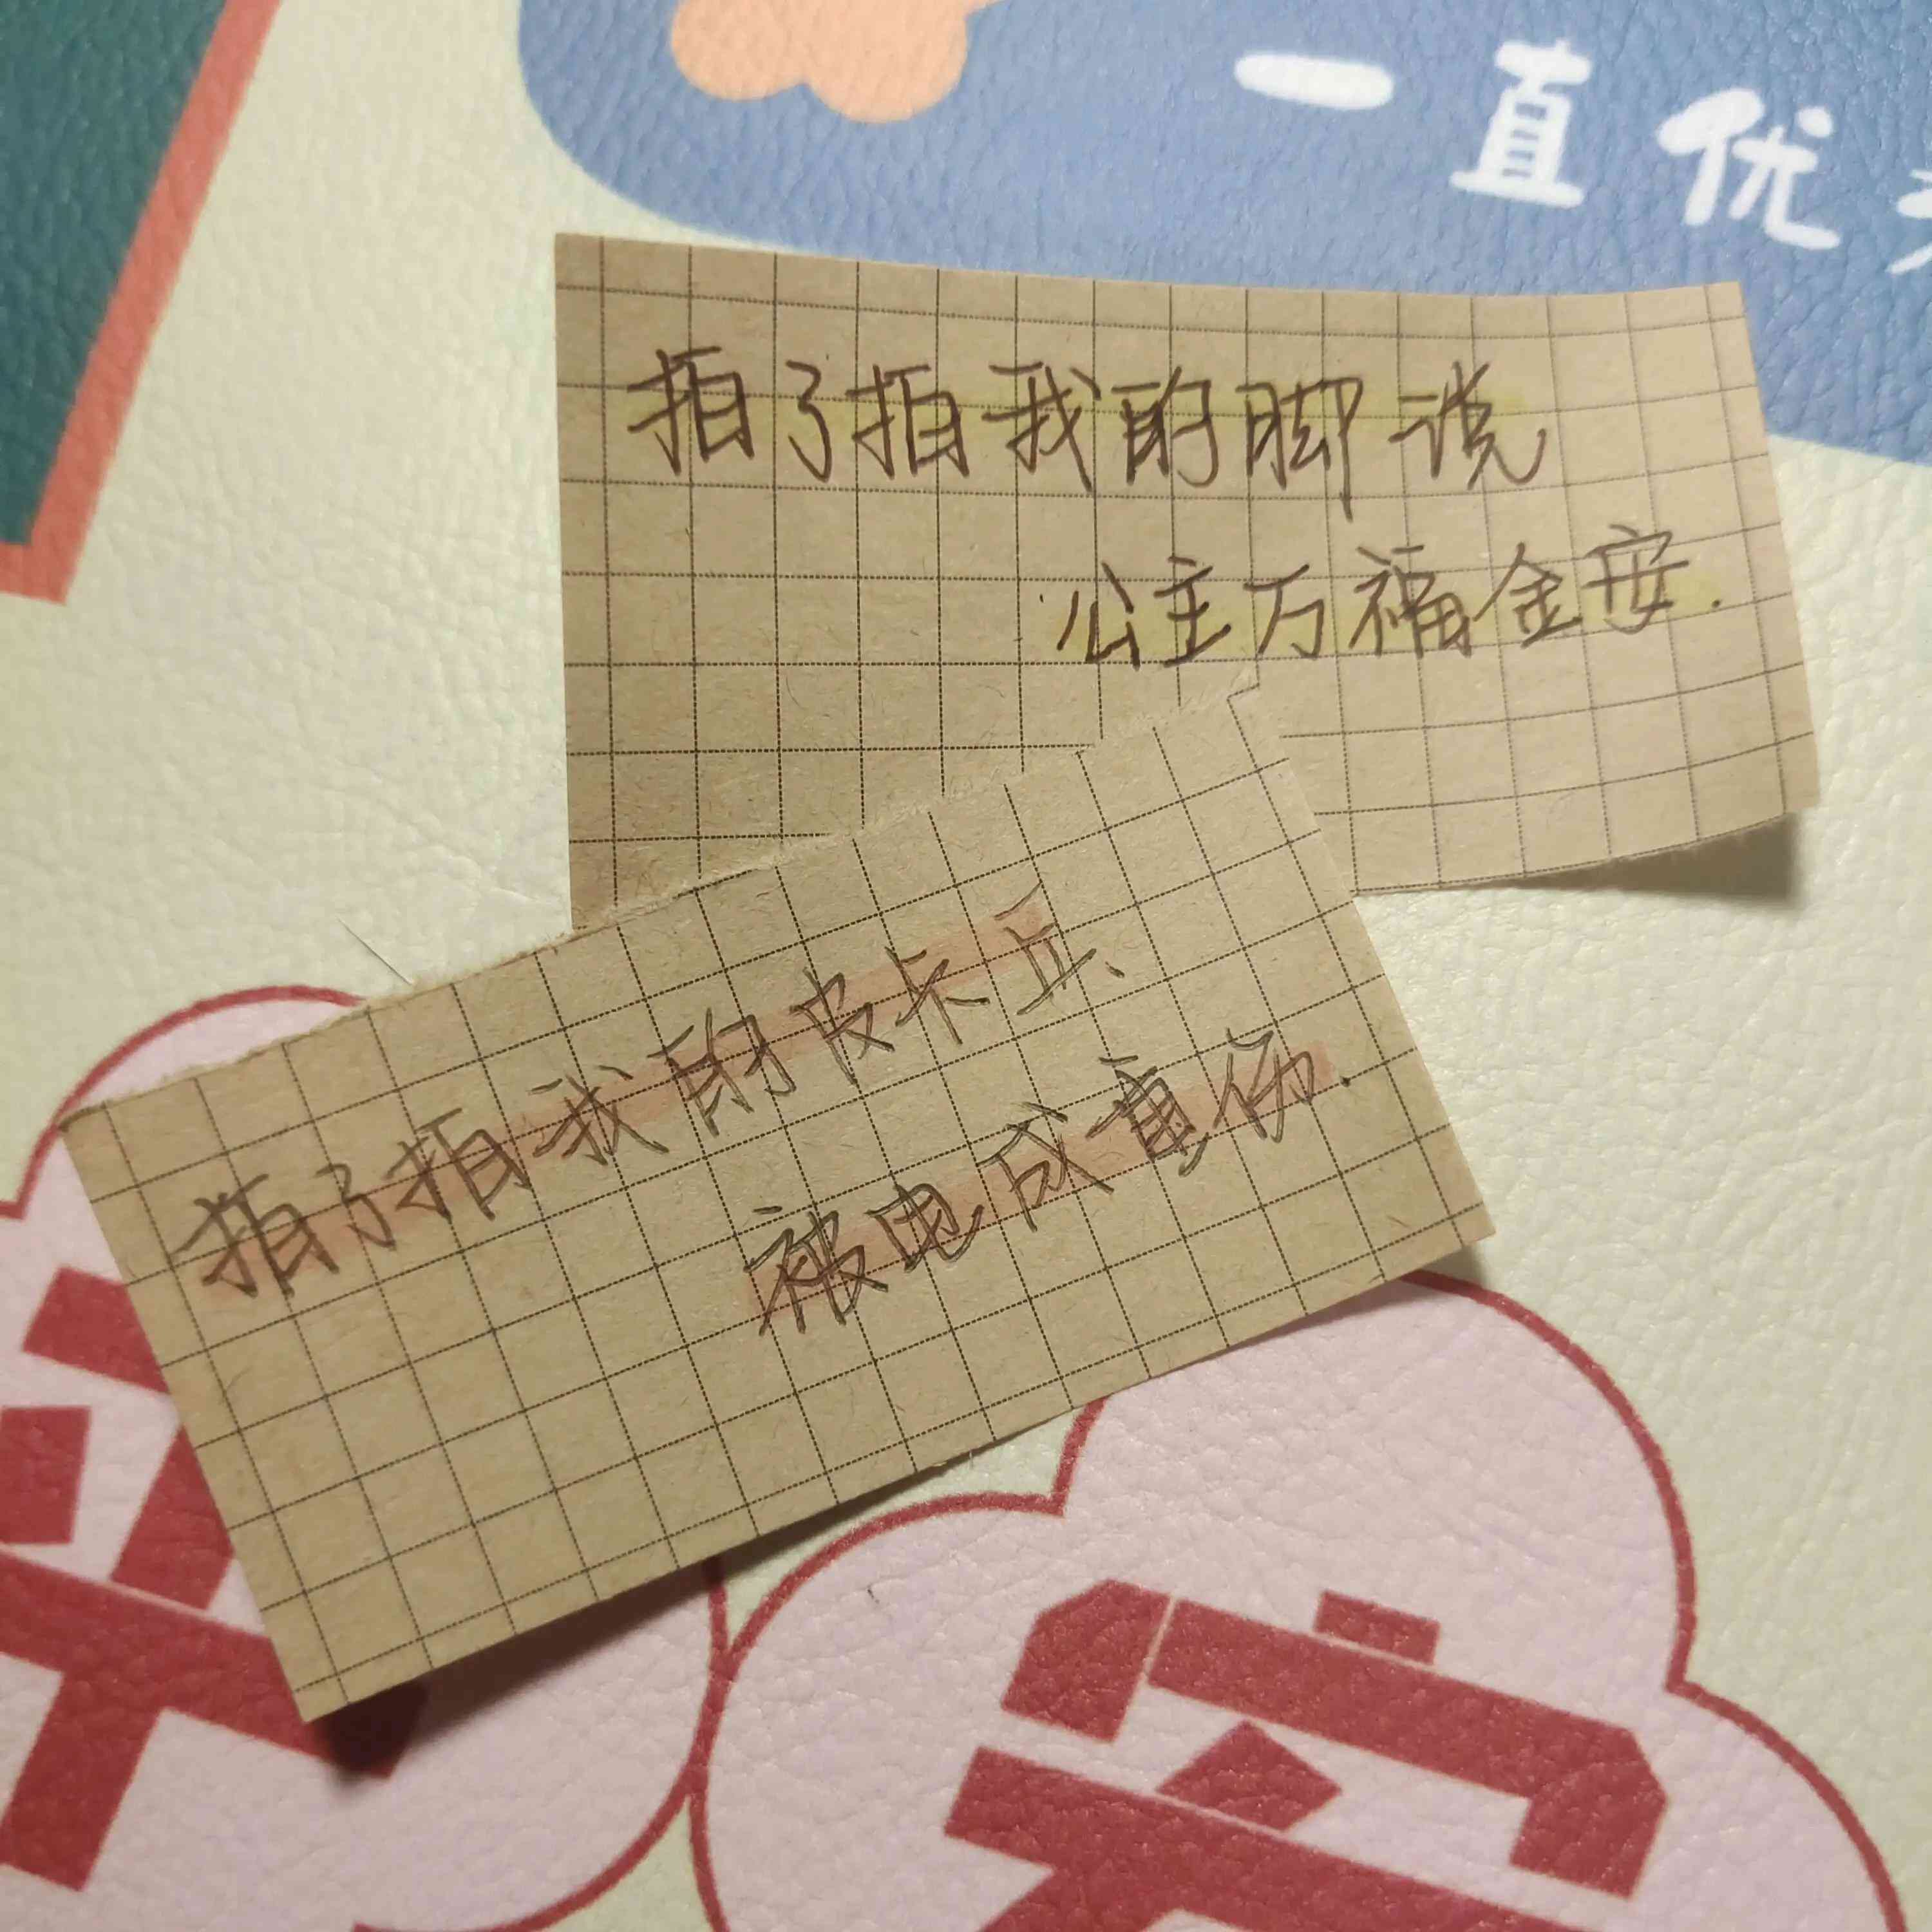 一直优
拍了拍我的脚说
公主万福金安.
拍了拍我的皮卡丘、
被电成重伤.